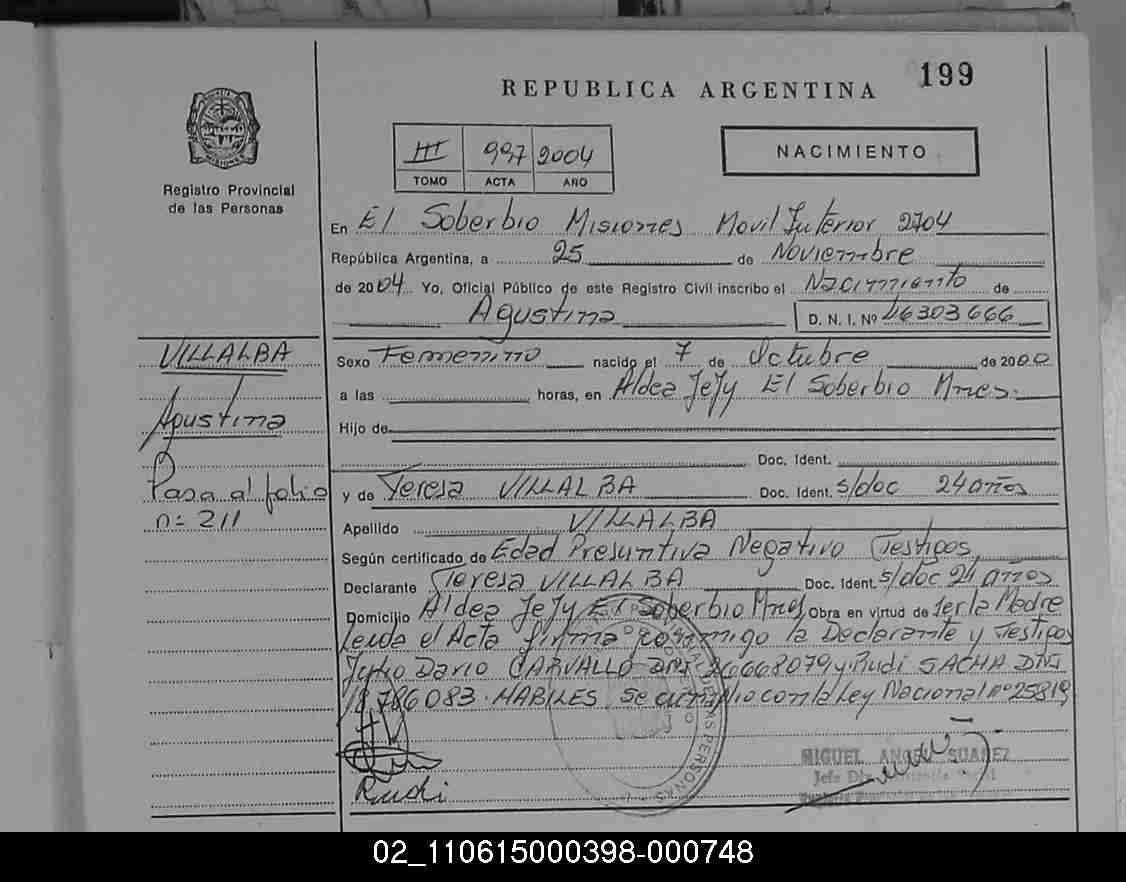 199
REPUBLICA ARGENTINA
Registro Provincial
de las Personas
III 997 2004
TOMO ACTA AÑO
NACIMIENTO
En El Soberbio Misiones Movil Interior 2704
República Argentina, a 25 de Noviembre
de 2004 Yo, Oficial Público de este Registro Civil inscribo el Nacimiento de
Agustina D. N. I. Nº 46303666
VILLALBA
Agustina
Pasa al folio
nº 211
Sexo Femenino nacido el 7 de Octubre de 2000
a las horas, en Aldea Jejy El Soberbio Mnes.
Hijo de
Doc. Ident.
y de Teresa VILLALBA Doc. Ident. s/doc 24 años
Apellido VILLALBA
Según certificado de Edad Presuntiva Negativo Testigos
Declarante Teresa VILLALBA Doc. Ident. s/doc 24 años
Domicilio Aldea Jejy El Soberbio Mnes Obra en virtud de Ser la Madre
Leida el Acta firma conmigo la Declarante y Testigos
Julio Dario CARVALLO DNI 26668079 y Rudi SACHA DNI
18786083. HABILES Se cumplio con la Ley Nacional nº 25819
Rudi
MIGUEL ANGEL SUAREZ
02_110615000398-000748